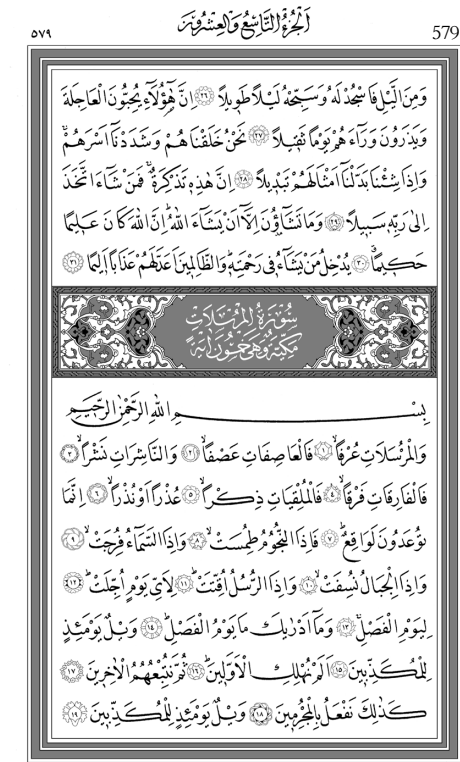 الجزء التاسع والعشرون
٥٧٩
579
وَمِنَ الَّيْلِ فَاسْجُدْ لَهُ وَسَبِّحْهُ لَيْلًا طَوِيلًا ﴿٢٦﴾ اِنَّ هٰٓؤُ۬لَٓاءِ يُحِبُّونَ الْعَاجِلَةَ
وَيَذَرُونَ وَرَٓاءَهُمْ يَوْمًا ثَقِيلًا ﴿٢٧﴾ نَحْنُ خَلَقْنَاهُمْ وَشَدَدْنَٓا اَسْرَهُمْ
وَاِذَا شِئْنَا بَدَّلْنَٓا اَمْثَالَهُمْ تَبْدِيلًا ﴿٢٨﴾ اِنَّ هٰذِهِ تَذْكِرَةٌ فَمَنْ شَٓاءَ اتَّخَذَ
اِلٰى رَبِّهِ سَبِيلًا ﴿٢٩﴾ وَمَا تَشَٓاؤُ۫نَ اِلَّٓا اَنْ يَشَٓاءَ اللّٰهُ اِنَّ اللّٰهَ كَانَ عَلِيمًا
حَكِيمًا ﴿٣٠﴾ يُدْخِلُ مَنْ يَشَٓاءُ فِى رَحْمَتِهِ وَالظَّالِمِينَ اَعَدَّ لَهُمْ عَذَابًا اَلِيمًا ﴿٣١﴾
سُورَةُ الْمُرْسَلَاتِ
مَكِّيَّةٌ وَهِىَ خَمْسُونَ اٰيَةً
بِسْمِ اللّٰهِ الرَّحْمٰنِ الرَّحِيمِ
وَالْمُرْسَلَاتِ عُرْفًا ﴿١﴾ فَالْعَاصِفَاتِ عَصْفًا ﴿٢﴾ وَالنَّاشِرَاتِ نَشْرًا ﴿٣﴾
فَالْفَارِقَاتِ فَرْقًا ﴿٤﴾ فَالْمُلْقِيَاتِ ذِكْرًا ﴿٥﴾ عُذْرًا اَوْ نُذْرًا ﴿٦﴾ اِنَّمَا
تُوعَدُونَ لَوَاقِعٌ ﴿٧﴾ فَاِذَا النُّجُومُ طُمِسَتْ ﴿٨﴾ وَاِذَا السَّمَٓاءُ فُرِجَتْ ﴿٩﴾
وَاِذَا الْجِبَالُ نُسِفَتْ ﴿١٠﴾ وَاِذَا الرُّسُلُ اُقِّتَتْ ﴿١١﴾ لِاَىِّ يَوْمٍ اُجِّلَتْ ﴿١٢﴾
لِيَوْمِ الْفَصْلِ ﴿١٣﴾ وَمَٓا اَدْرٰيكَ مَا يَوْمُ الْفَصْلِ ﴿١٤﴾ وَيْلٌ يَوْمَئِذٍ
لِلْمُكَذِّبِينَ ﴿١٥﴾ اَلَمْ نُهْلِكِ الْاَوَّلِينَ ﴿١٦﴾ ثُمَّ نُتْبِعُهُمُ الْاٰخِرِينَ ﴿١٧﴾
كَذٰلِكَ نَفْعَلُ بِالْمُجْرِمِينَ ﴿١٨﴾ وَيْلٌ يَوْمَئِذٍ لِلْمُكَذِّبِينَ ﴿١٩﴾